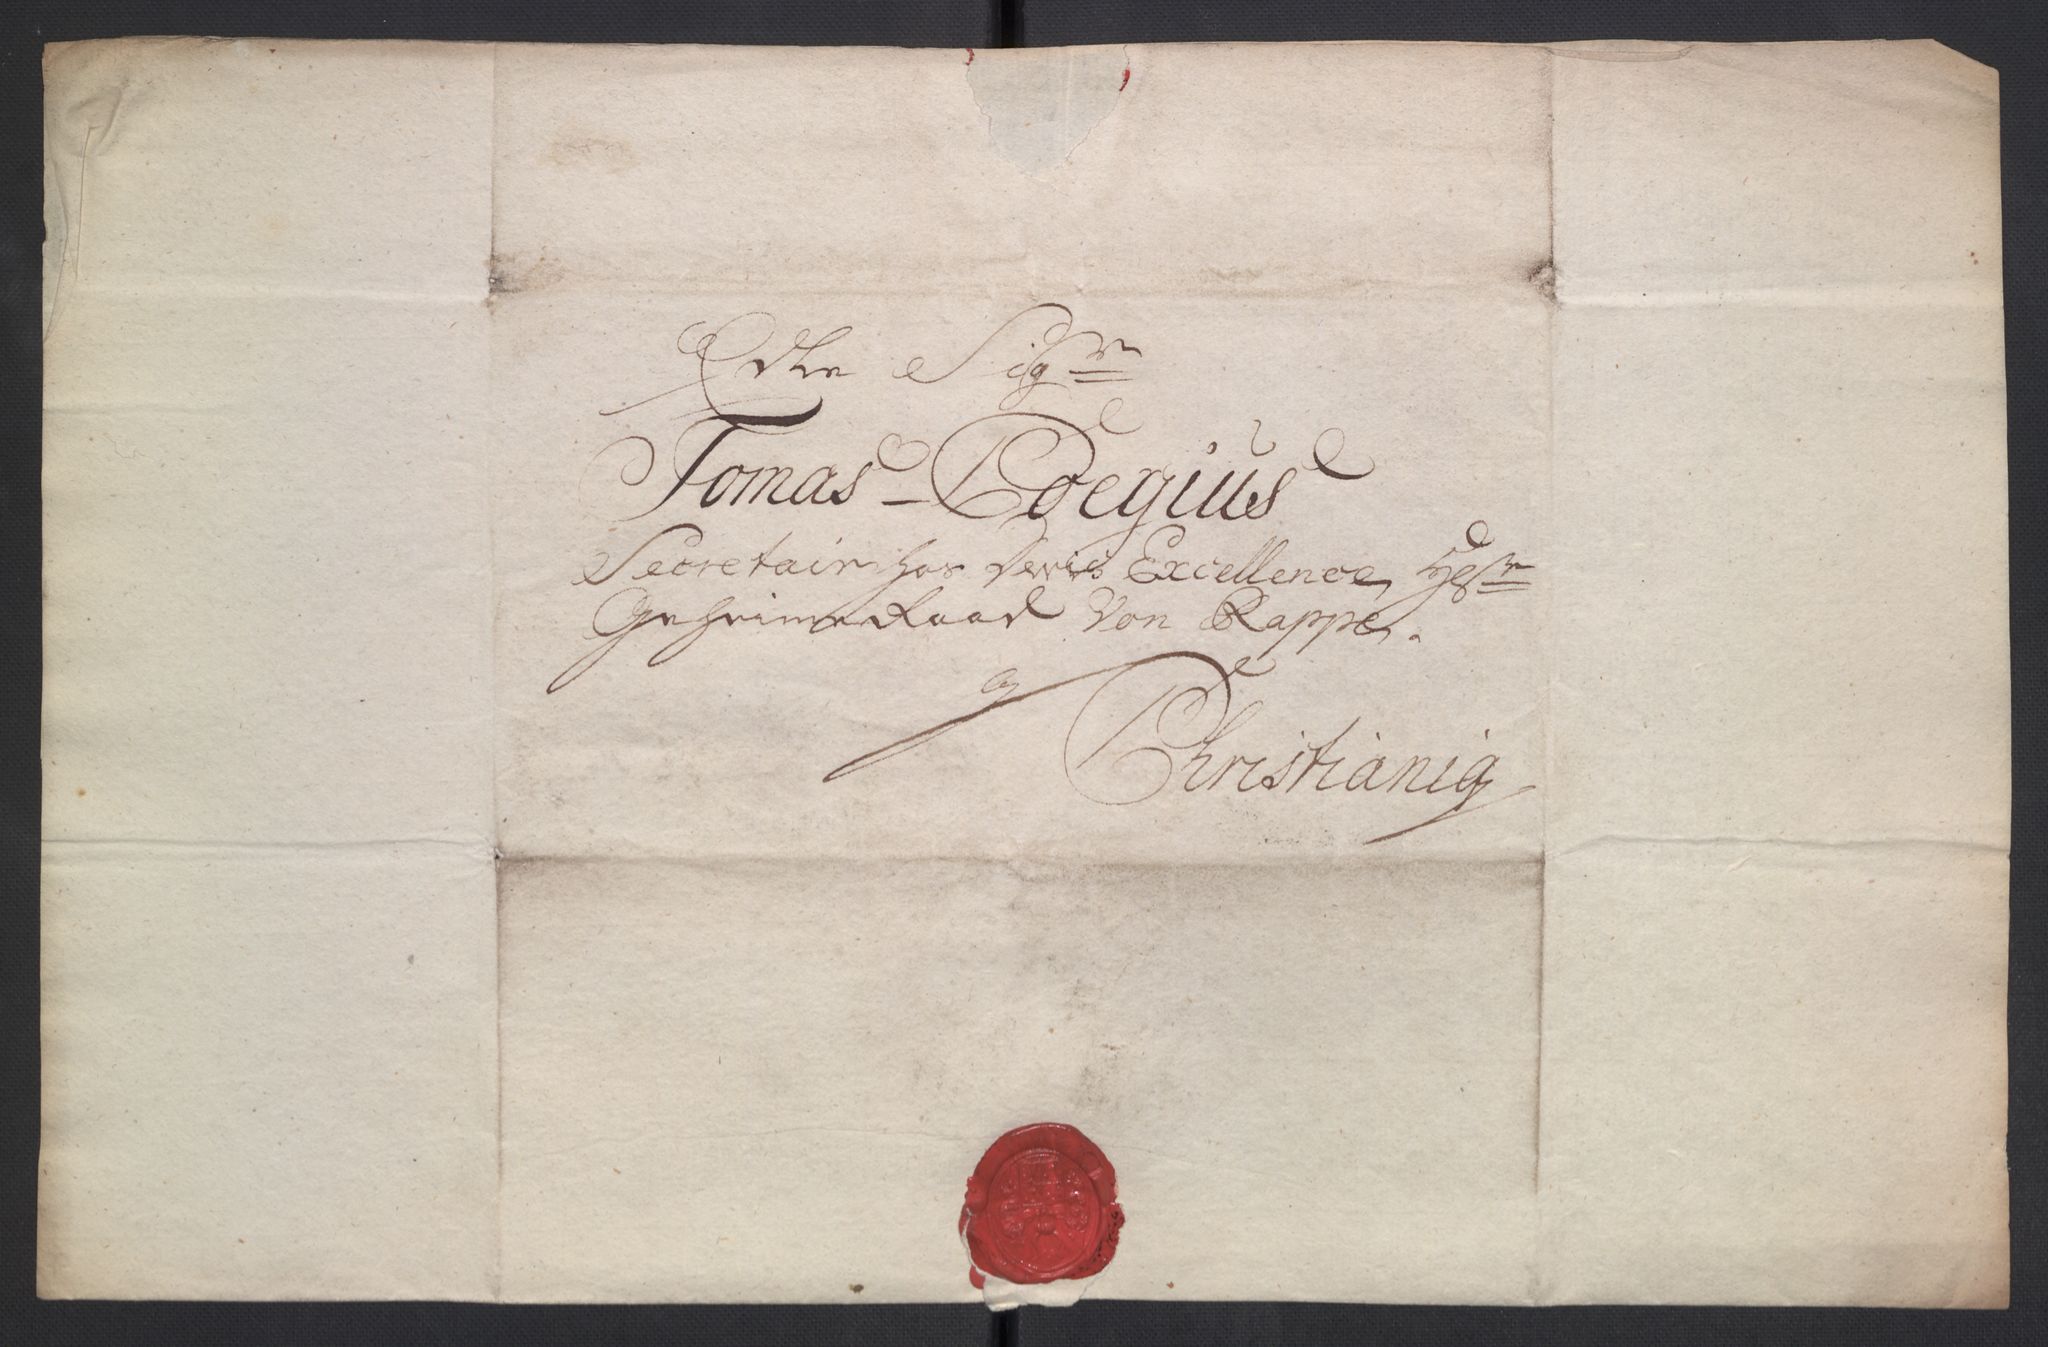 Edle Sigr
Tomas Poegius
Secretair hos Deris Excellence Hr
Geheime Raad Von Rappe.
a
Christiania